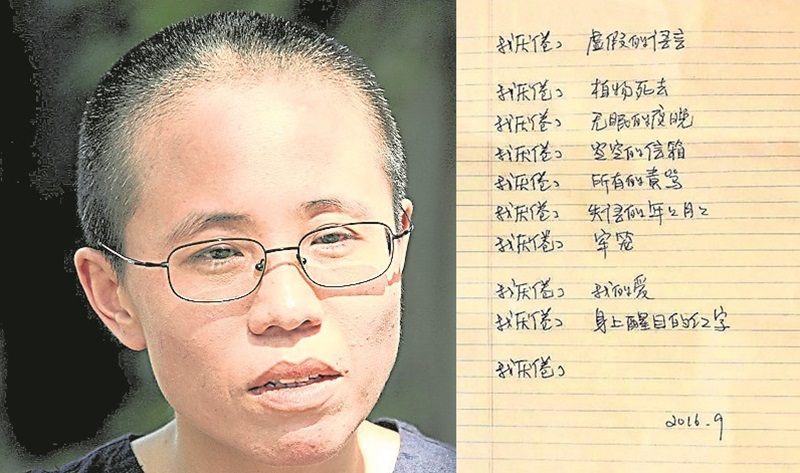 我厌倦了 虚假的语言
我厌倦了 植物死去
我厌倦了 无眠的夜晚
我厌倦了 空空的信箱
我厌倦了 所有的责骂
我厌倦了 失语的年々月々
我厌倦了 牢笼
我厌倦了 我的爱
我厌倦了 身上醒目的红字
我厌倦了
2016.9